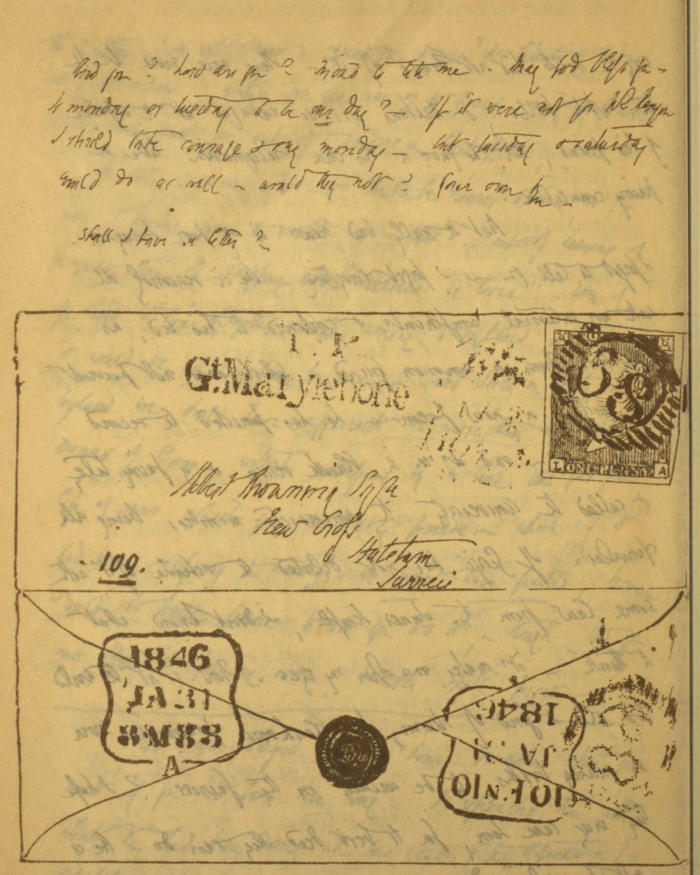 And you? how are you? Mind to tell me. May God bless you—
Is monday or tuesday to be our day?— If it were not for Mr Kenyon
I should take courage & say monday— but tuesday & saturday
would do as well— would they not? Your own Ba—
Shall I have a letter?
T.P
Gt.Marylebone
Robert Browning Esqre
New Cross
Hatcham
Surrey
109.
ONE PENNY
A
1846
JA 31
A
1846
JA 31